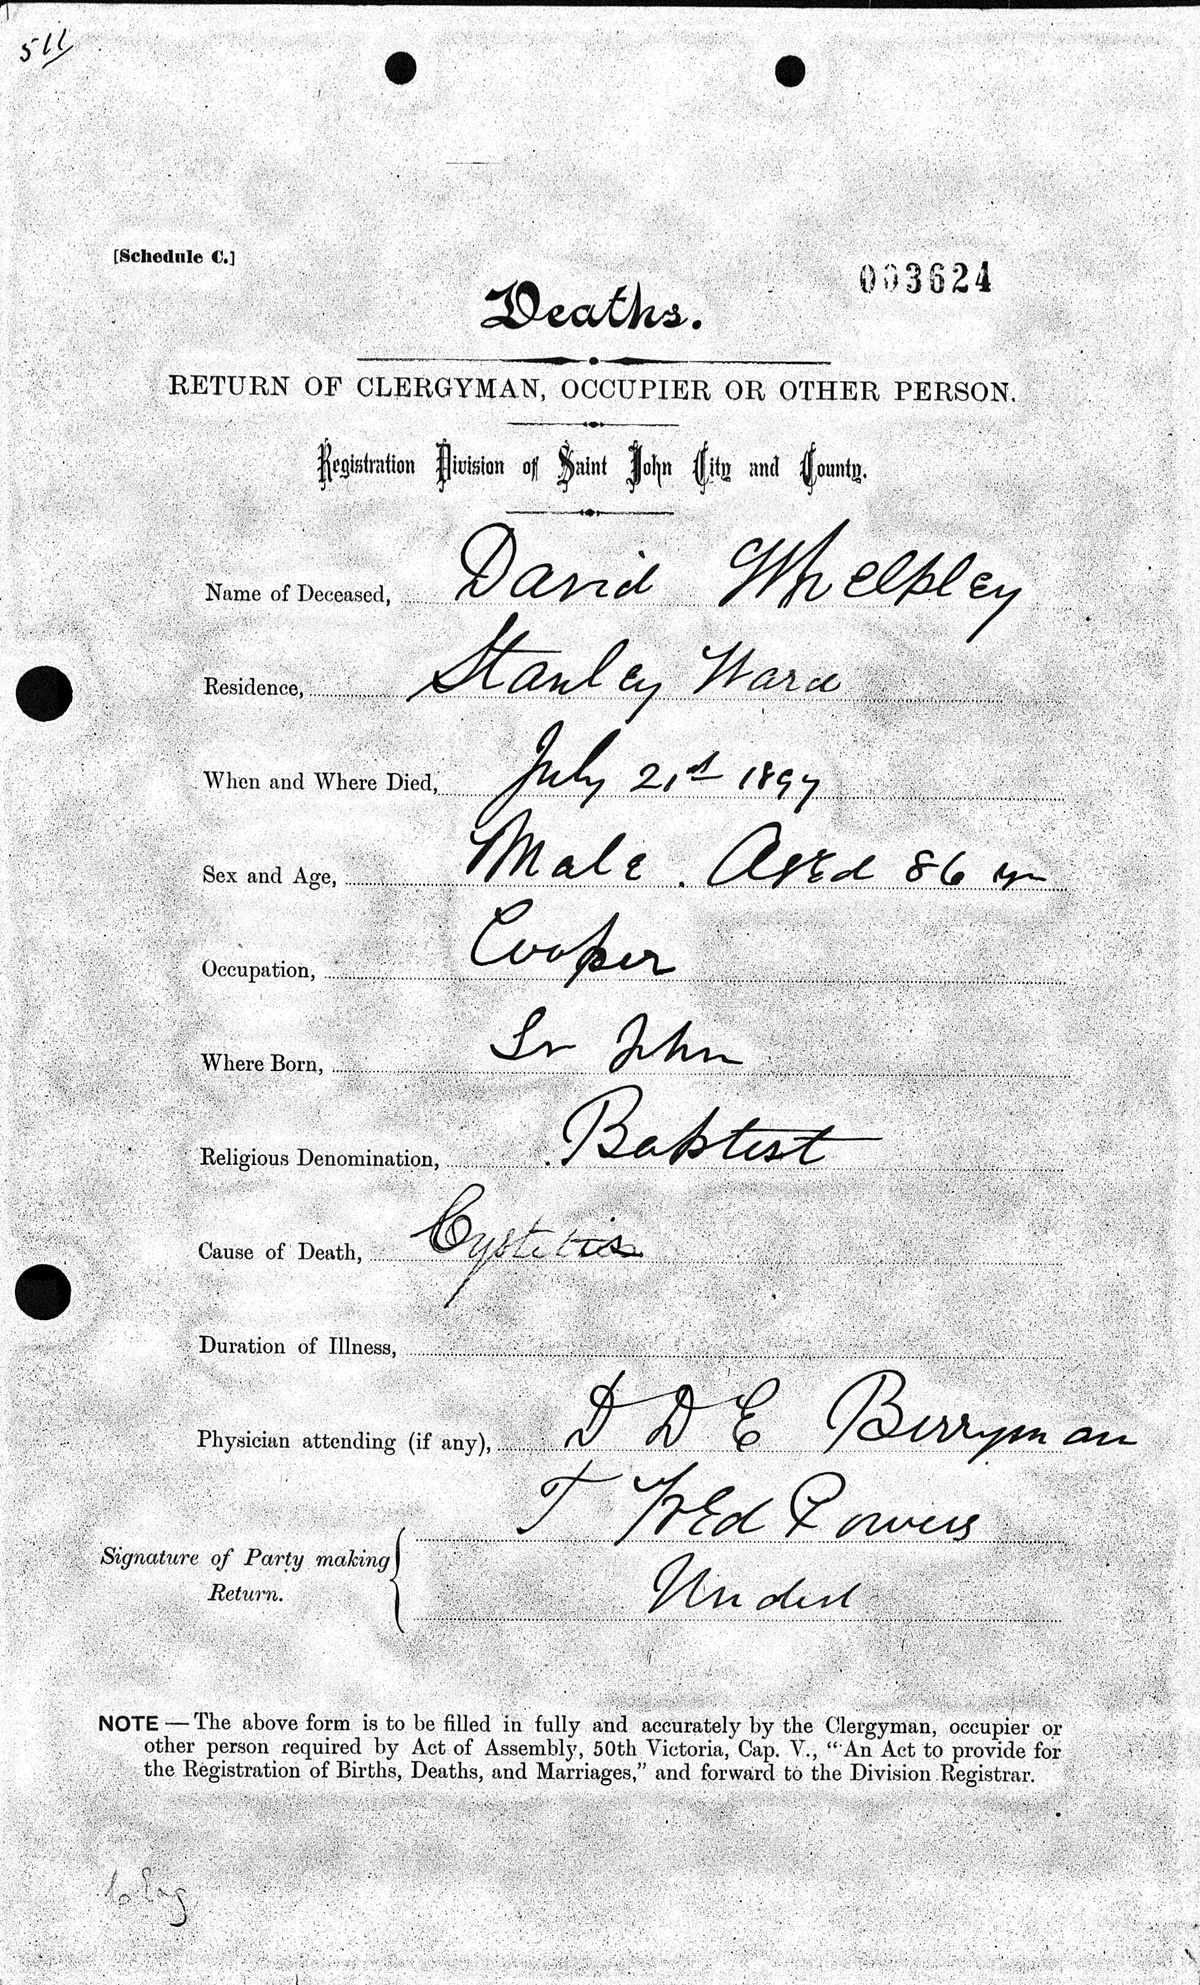 511
[Schedule C.]
003624
Deaths.
RETURN OF CLERGYMAN, OCCUPIER OR OTHER PERSON.
Registration Division of Saint John City and County.
Name of Deceased, David Whelpley
Residence, Stanley Ward
When and Where Died, July 21st 1897
Sex and Age, Male. Aged 86 yrs
Occupation, Cooper
Where Born, St John
Religious Denomination, Baptist
Cause of Death, Cystitis
Duration of Illness,
Physician attending (if any), D D E Berryman
T Fred Powers
Signature of Party making
Return.
Undert
NOTE — The above form is to be filled in fully and accurately by the Clergyman, occupier or
other person required by Act of Assembly, 50th Victoria, Cap. V., "An Act to provide for
the Registration of Births, Deaths, and Marriages," and forward to the Division Registrar.